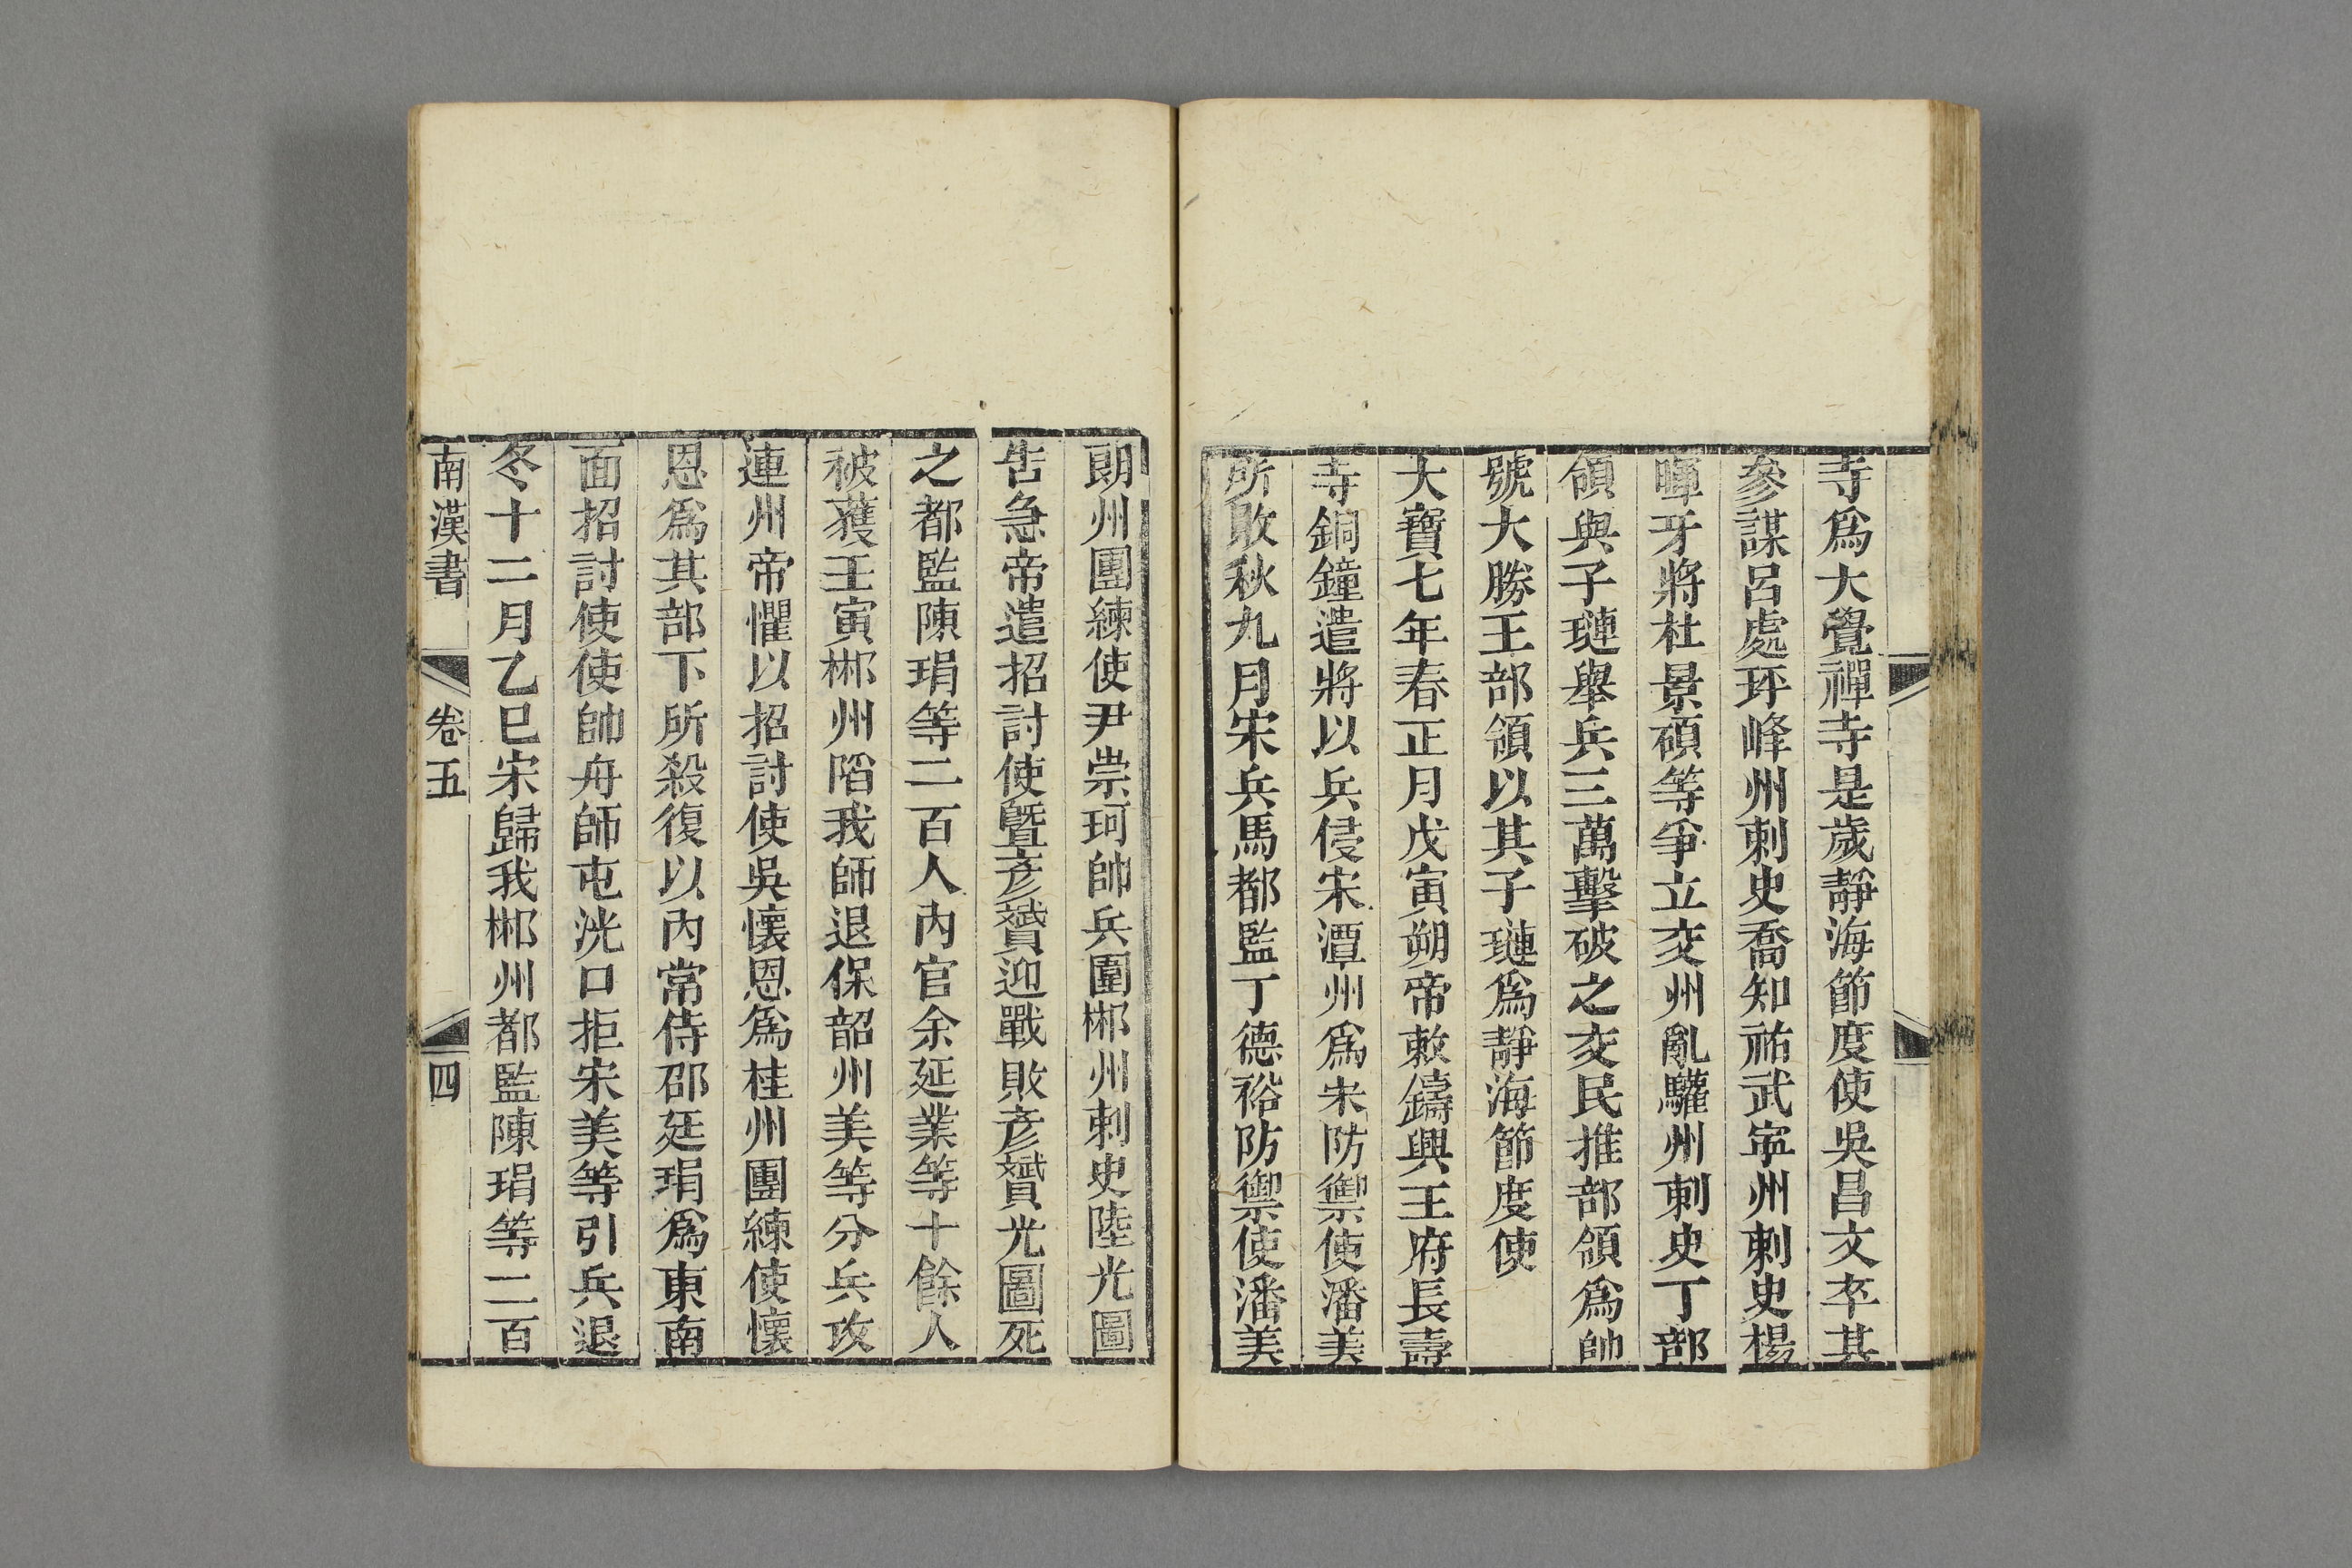 寺爲大覺禪寺是歲靜海節度使吳昌文卒其
參謀呂處坪峰州刺史喬知祐武寧州刺史楊
暉牙將杜景碩等爭立交州亂驩州刺史丁部
領與子璉舉兵三萬擊破之交民推部領爲帥
號大勝王部領以其子璉爲靜海節度使
大寶七年春正月戊寅朔帝敕鑄興王府長壽
寺銅鐘遣將以兵侵宋潭州爲宋防禦使潘美
所敗秋九月宋兵馬都監丁德裕防禦使潘美
朗州團練使尹崇珂帥兵圍郴州刺史陸光圖
告急帝遣招討使曁彥贇迎戰敗彥贇光圖死
之都監陳琄等二百人內官余延業等十餘人
被獲壬寅郴州陷我師退保韶州美等分兵攻
連州帝懼以招討使吳懷恩爲桂州團練使懷
恩爲其部下所殺復以內常侍邵廷琄爲東南
面招討使使帥舟師屯洸口拒宋美等引兵退
冬十二月乙巳宋歸我郴州都監陳琄等二百
南漢書 卷五 四